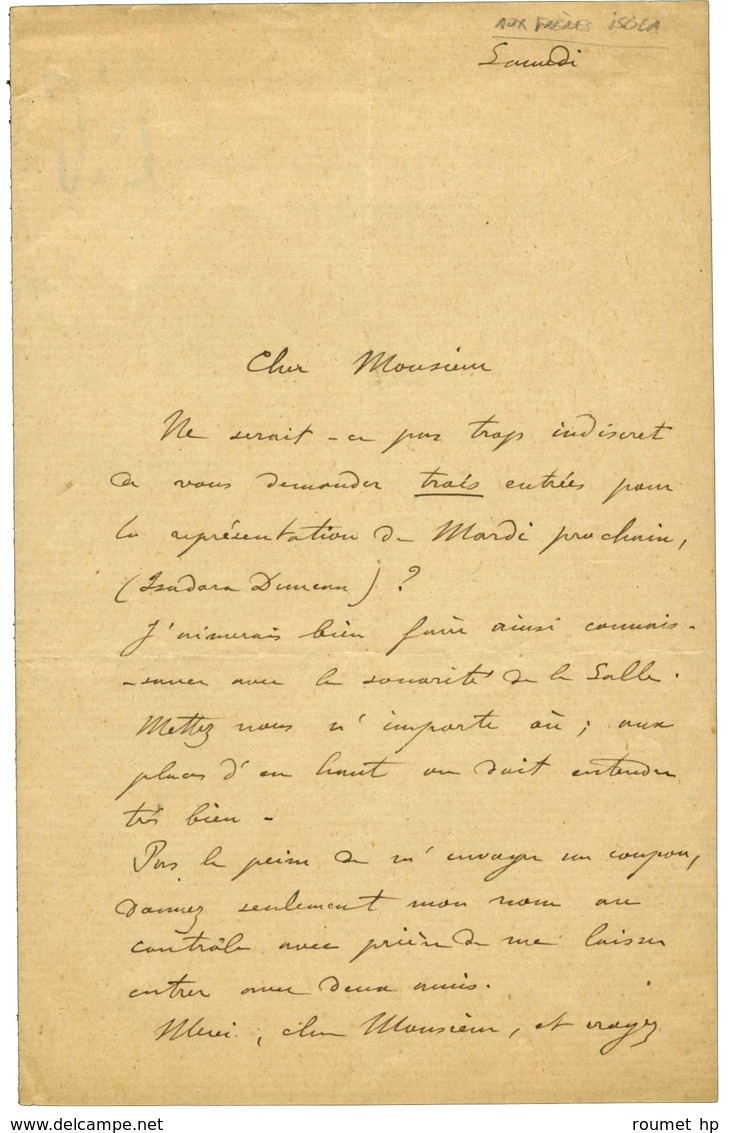 AUX FRÈRES ISOLA
Samedi
Cher Monsieur
Ne serait-ce pas trop indiscret
de vous demander trois entrées pour
la représentation de Mardi prochain,
(Isadora Duncan) ?
J'aimerais bien faire ainsi connais-
-sance avec la sonorité de la Salle.
Mettez nous n'importe où ; aux
places d'en haut on doit entendre
très bien -
Pas la peine de m'envoyer un coupon,
donnez seulement mon nom au
contrôle avec prière de me laisser
entrer avec deux amis.
Merci, cher Monsieur, et croyez
roumet hp